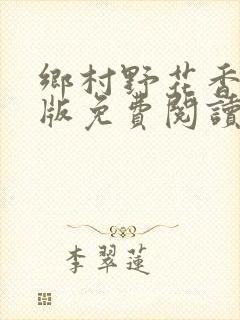 鄉村野花香
版免費閱讀
李翠蓮